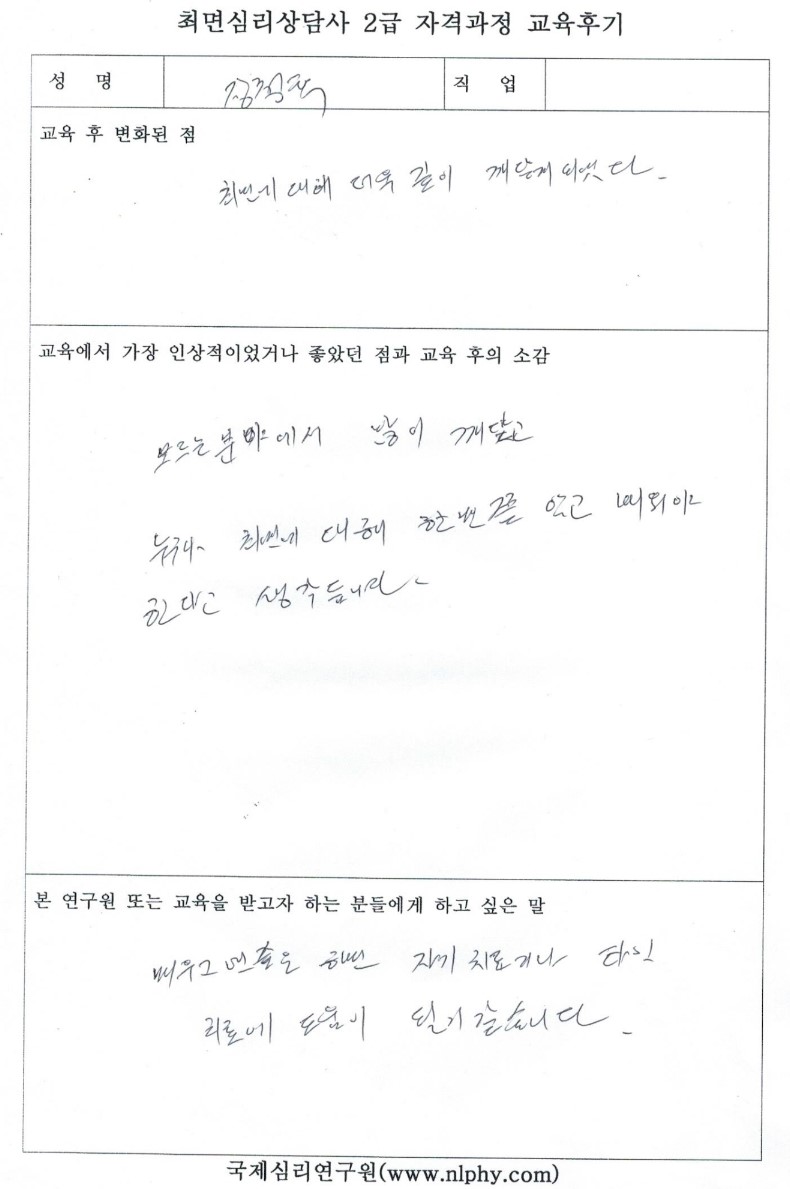 최면심리상담사 2급 자격과정 교육후기
성 명
직 업
교육 후 변화된 점
최면에 대해 더욱 깊이 깨닫게 되었다.
교육에서 가장 인상적이었거나 좋았던 점과 교육 후의 소감
모르는 분야에서 많이 깨닫고
누구나 최면에 대해 한번쯤 알고 배워야
한다고 생각듭니다.
본 연구원 또는 교육을 받고자 하는 분들에게 하고 싶은 말
배우고 하면 자기 치료거나 타인
치료에 도움이 될거 같습니다.
국제심리연구원(www.nlphy.com)